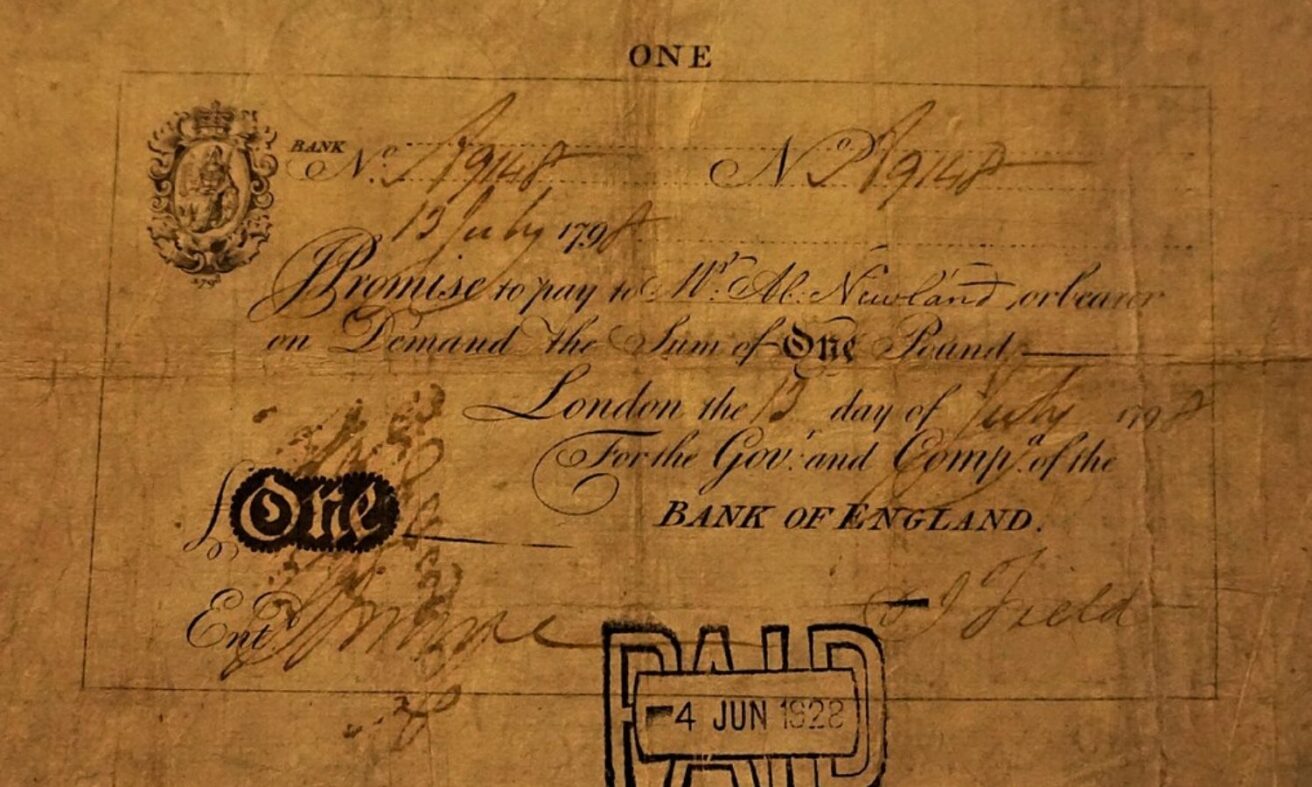 ONE
BANK
No. 19148 No 19148
13 July 1798
I Promise to pay to Mr. Ab. Newland, or bearer
on Demand the Sum of One Pound
London the 13 day of July 1798
For the Gov.r and Comp.a of the
£ One
BANK OF ENGLAND.
Ent.d
J Field
PAID
4 JUN 1928